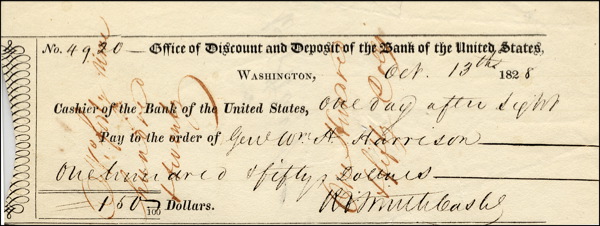 No. 4980 — Office of Discount and Deposit of the Bank of the United States,
Washington, Oct. 13th 1828
Cashier of the Bank of the United States, One day after Sight
Pay to the order of Genl Wm H. Harrison
One hundred & fifty Dollars
150 /100 Dollars. Rd Smith Cashr